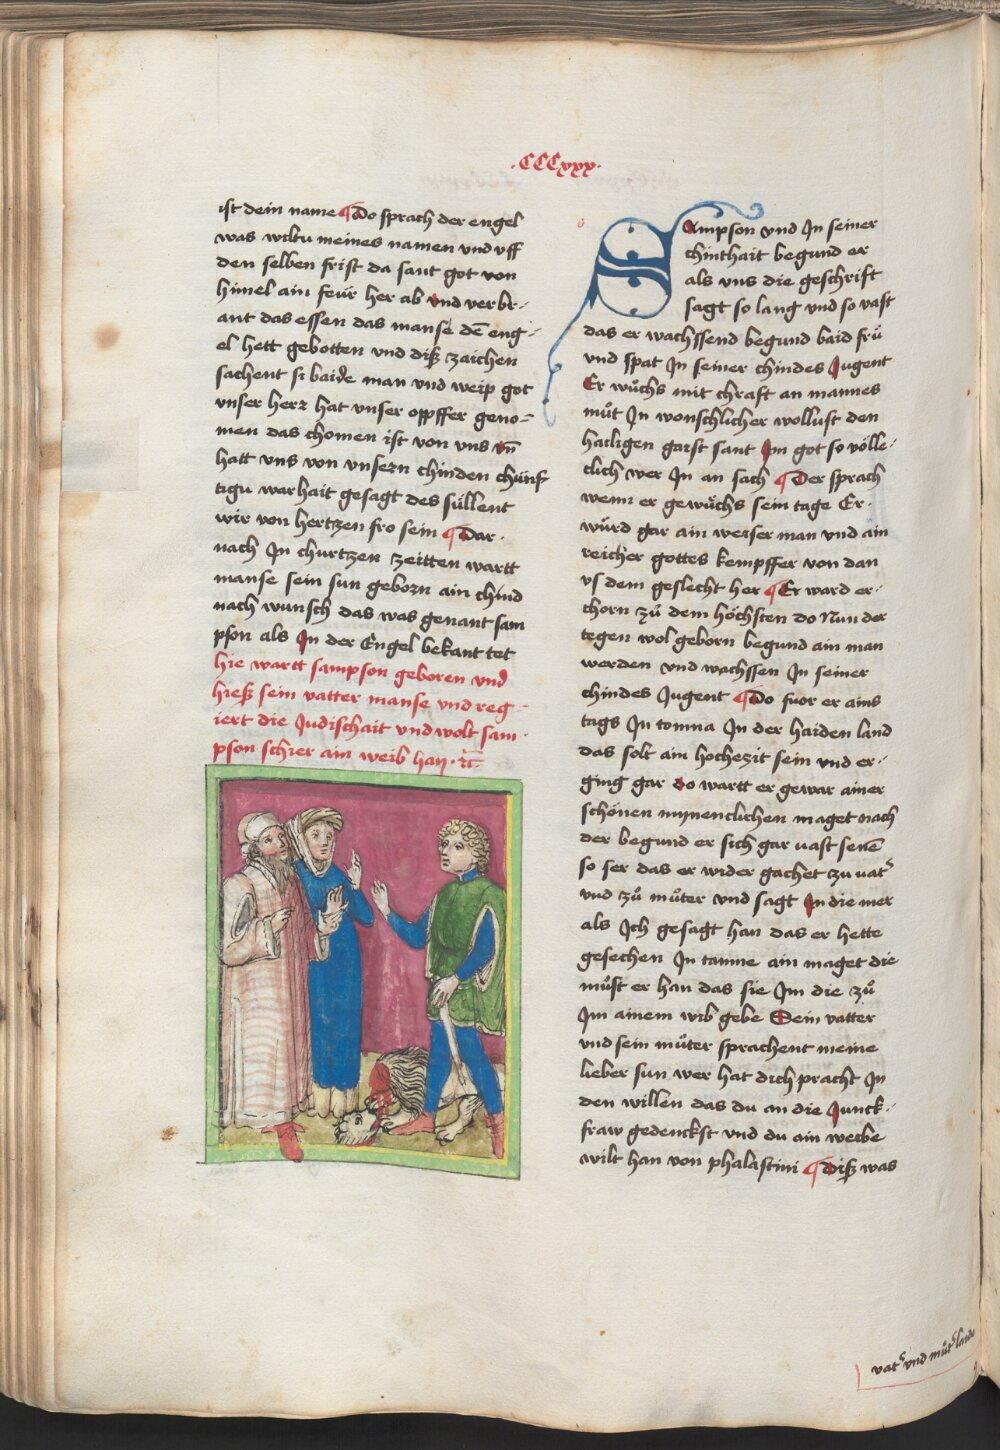 ·CCCxxx·
ist dein name ¶ Do sprach der engel
was wiltu meines namen vnd vff
den selben frist da sant got von
himel ain feür her ab vnd verbr-
ant das essen das manse dē eng-
el hett gebotten vnd diß zaichen
sachent si baide man vnd weip got
vnser herr hat vnser opffer geno-
men das chomen ist von vns vn̄
hatt vns von vnsern chinden chünf
tigu warhait gesagt des süllent
wir von hertzen fro sein ¶ Dar-
nach Jn churtzen zeitten wartt
manse sein sun geborn ain chind
nach wunsch das was genant sam
pson als Jn der Engel bekant tet
hie wartt sampson geboren vnd
hieß sein vatter manse vnd reg-
iert die Judischait vnd wolt sam-
pson schier ain weib han · ꝛc̄
Sampson vnd Jn seiner
chinthait begund er
als vns die geschrift
sagt so lang vnd so vast
das er wachssend begund baid frů
vnd spat Jn seiner chindes Jugent
Er wůchs mit chraft an mannes
můt Jn wonschlicher wollust den
hailigen gaist sant Jm got so völle-
clich wer Jn an sach ¶ Der sprach
wenn er gewůchs sein tage Er-
wurd gar ain weiser man vnd ain
reicher gottes kempffer von dan
vs dem geslecht her ¶ Er ward er-
chorn zů dem höchsten do Nun der
tegen wol geborn begund ain man
werden vnd wachssen Jn seiner
chindes Jugent ¶ Do fuor er ains
tags Jn tomna Jn der haiden land
das solt ain hochezit sein vnd er-
ging gar do wartt er gewar ainer
schönen mynenclichen maget nach
der begund er sich gar vast senē
so ser das er wider gachet zu vatˢ
vnd zů můter vnd sagt Jn die mer
als Jch gesagt han das er hette
gesechen Jn tamne ain maget die
můst er han das sie Jm die zů
Jm ainem wib gebe Sein vatter
vnd sein můter sprachent meine
lieber sun wer hat dich pracht Jn
den willen das du an die Junck-
fraw gedenckst vnd du ain weibe
wilt han von phalastini ¶ Diß was
vatˢ vnd můtˢ